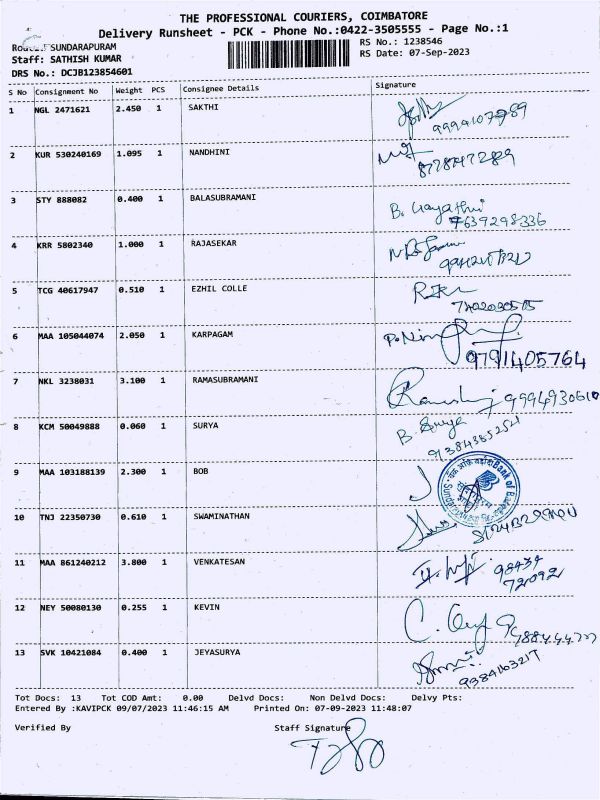 THE PROFESSIONAL COURIERS, COIMBATORE
Delivery Runsheet - PCK - Phone No.:0422-3505555 - Page No.:1
SUNDARAPURAM RS No.: 1238546
Staff: SATHISH KUMAR RS Date: 07-Sep-2023
DRS No.: DCJB123854601
S No Consignment No Weight PCS Consignee Details Signature
1 NGL 2471621 2.450 1 SAKTHI
2 KUR 530240169 1.095 1 NANDHINI
8778747289
3 STY 888082 0.400 1 BALASUBRAMANI
B. Gayathri
7639298336
4 KRR 5802340 1.000 1 RAJASEKAR
5 TCG 40617947 0.510 1 EZHIL COLLE
6 MAA 105044074 2.050 1 KARPAGAM
9791405764
7 NKL 3238031 3.100 1 RAMASUBRAMANI
9994930610
8 KCM 50049888 0.060 1 SURYA
B. Surya
9384385254
9 MAA 103188139 2.300 1 BOB
Bank of Baroda
10 TNJ 22350730 0.610 1 SWAMINATHAN
11 MAA 861240212 3.800 1 VENKATESAN
98434
72092
12 NEY 50080130 0.255 1 KEVIN
13 SVK 10421084 0.400 1 JEYASURYA
9384163217
Tot Docs: 13 Tot COD Amt: 0.00 Delvd Docs: Non Delvd Docs: Delvy Pts:
Entered By :KAVIPCK 09/07/2023 11:46:15 AM Printed On: 07-09-2023 11:48:07
Verified By Staff Signature